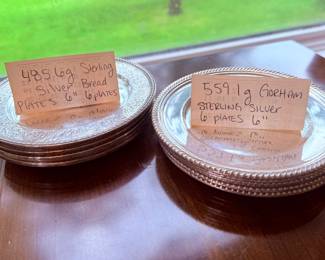 485.6g Sterling
Silver Bread
PLATES 6" 6 PLATES
559.1g GORHAM
STERLING SILVER
6 PLATES 6"